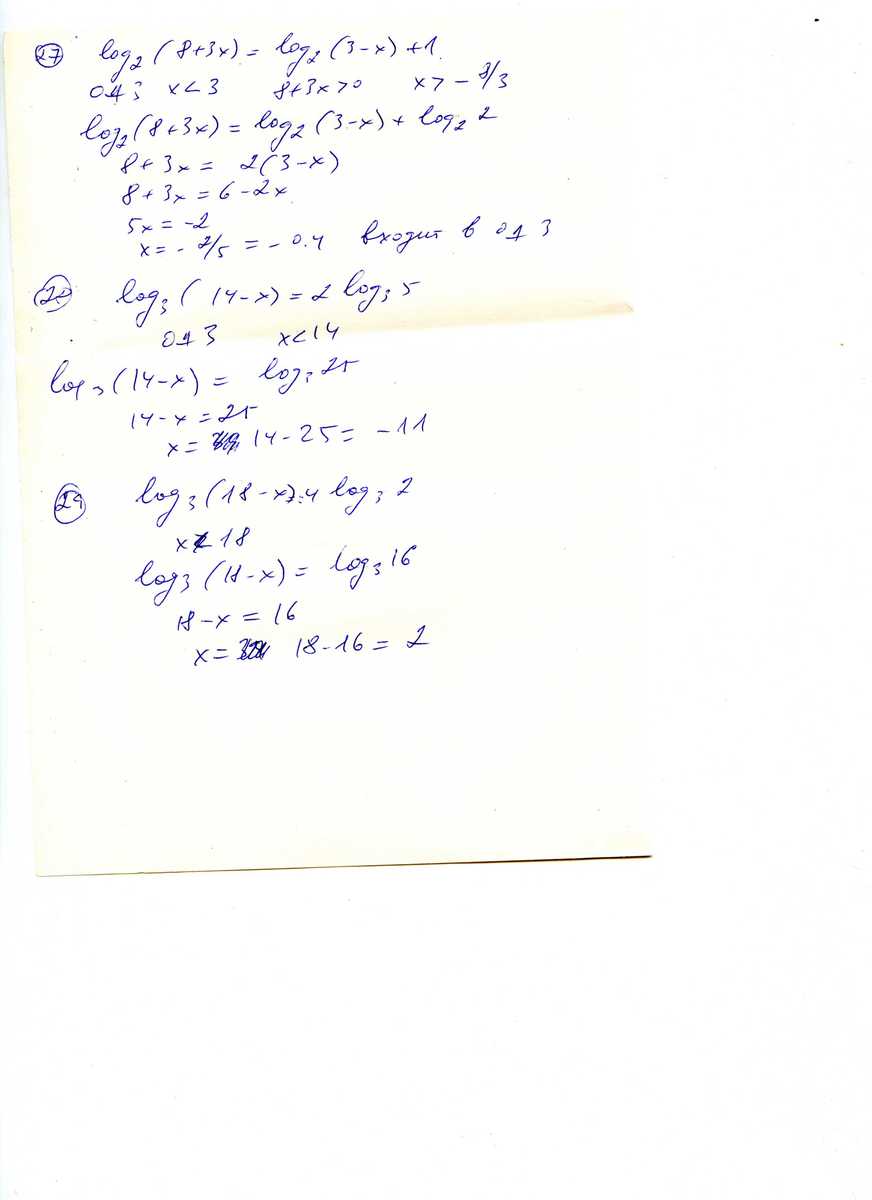 27 log₂(8+3x) = log₂(3-x)+1
ОДЗ x<3 8+3x>0 x>-8/3
log₂(8+3x) = log₂(3-x) + log₂ 2
8+3x = 2(3-x)
8+3x = 6-2x
5x = -2
x = -2/5 = -0.4 входит в ОДЗ
log₃(14-x) = 2 log₃ 5
ОДЗ x<14
log₃(14-x) = log₃ 25
14-x = 25
x = 14-25 = -11
29 log₃(18-x) = 4 log₃ 2
x<18
log₃(18-x) = log₃ 16
18-x = 16
x = 18-16 = 2